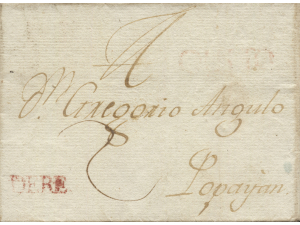 A
Dⁿ Gregorio Angulo
Popayán.
DEBE